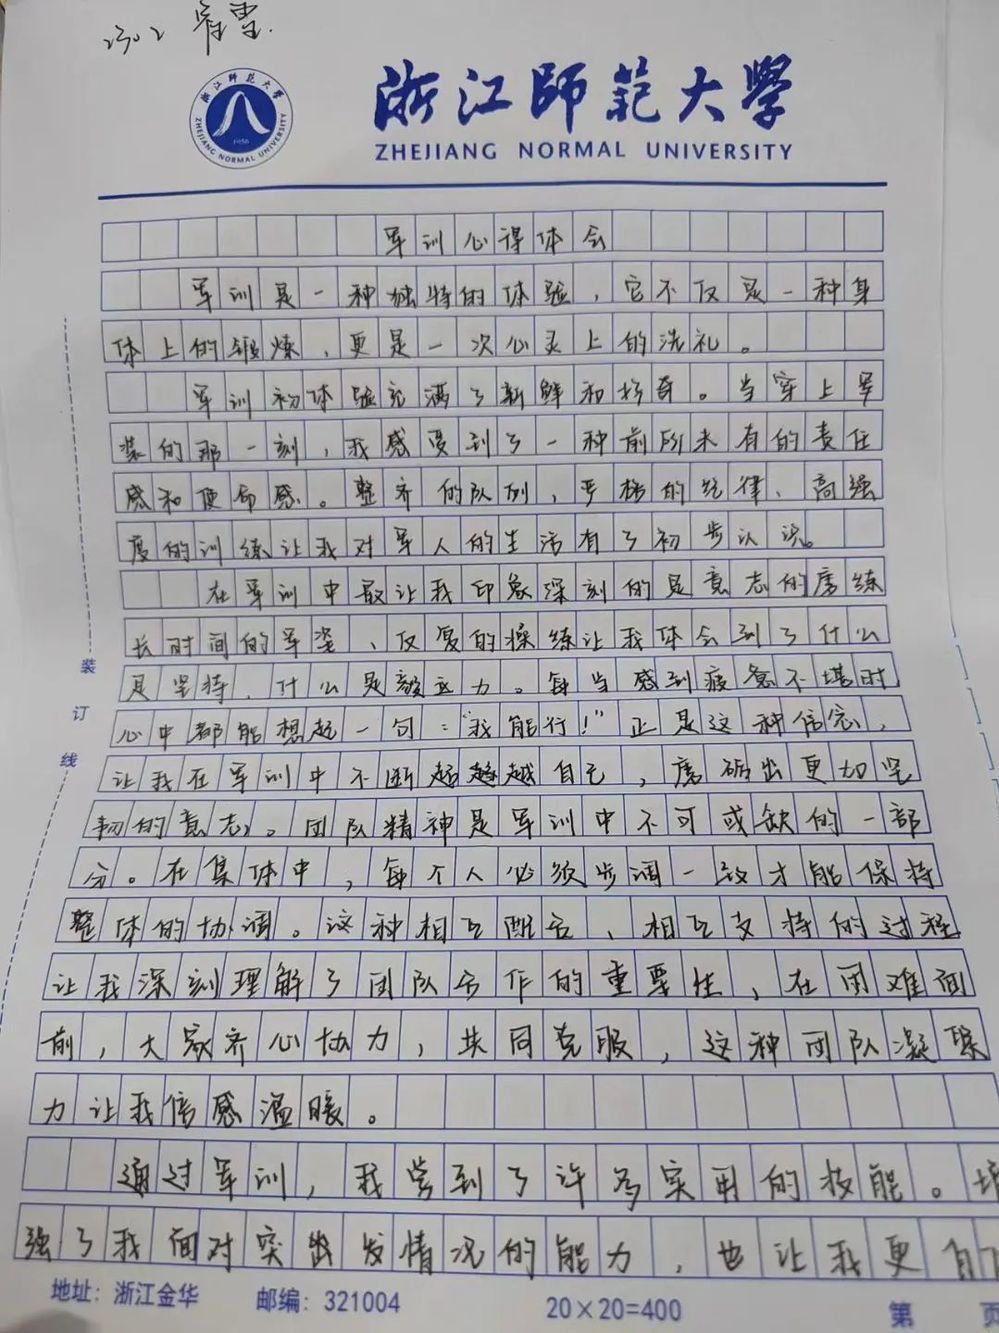 2302 霍雪.
浙江師範大學
ZHEJIANG NORMAL UNIVERSITY
浙江师范大学
ZHEJIANG NORMAL UNIVERSITY
1956
军训心得体会
军训是一种独特的体验，它不仅是一种身
体上的锻炼，更是一次心灵上的洗礼。
军训初体验充满了新鲜和好奇。当穿上军
装的那一刻，我感受到了一种前所未有的责任
感和使命感。整齐的队列，严格的纪律、高强
度的训练让我对军人的生活有了初步认识。
在军训中最让我印象深刻的是意志的磨练
长时间的军姿、反复的操练让我体会到了什么
是坚持，什么是毅力。每当感到疲惫不堪时
心中都能想起一句："我能行！"正是这种信念，
让我在军训中不断超越自己，磨砺出更加坚
韧的意志。团队精神是军训中不可或缺的一部
分。在集体中，每个人必须步调一致才能保持
整体的协调。这种相互配合、相互支持的过程
让我深刻理解了团队合作的重要性，在困难面
前，大家齐心协力，共同克服，这种团队凝聚
力让我倍感温暖。
通过军训，我学到了许多实用的技能。增
强了我面对突出发情况的能力，也让我更自
装
订
线
地址：浙江金华 邮编：321004 20×20=400 第 页